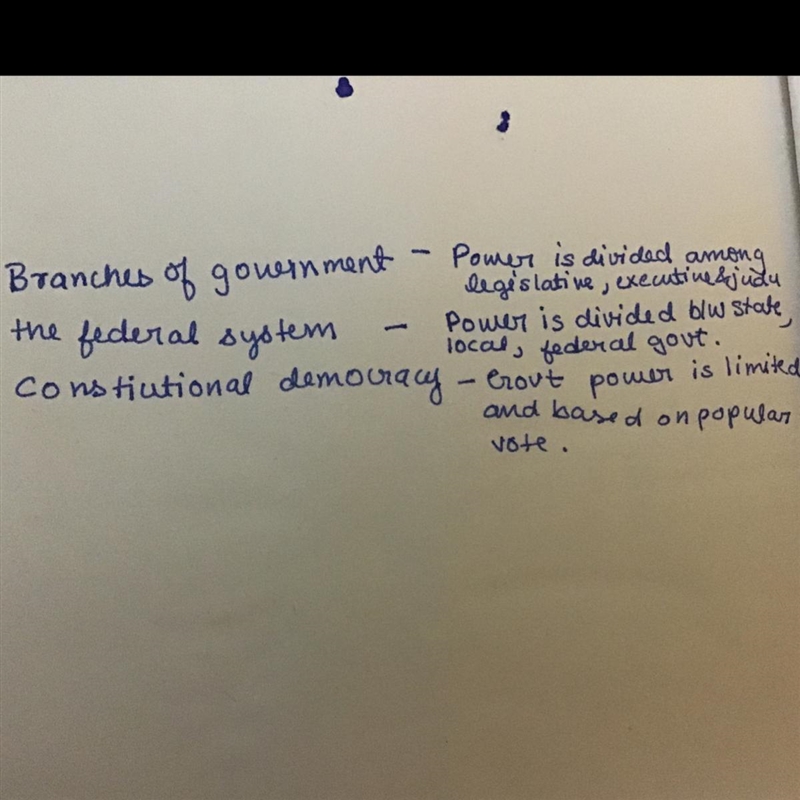 Branches of government - Power is divided among
legislative, executive & judu
the federal system - Power is divided b/w state,
local, federal govt.
Constiutional democracy - Govt power is limited
and based on popular
vote.